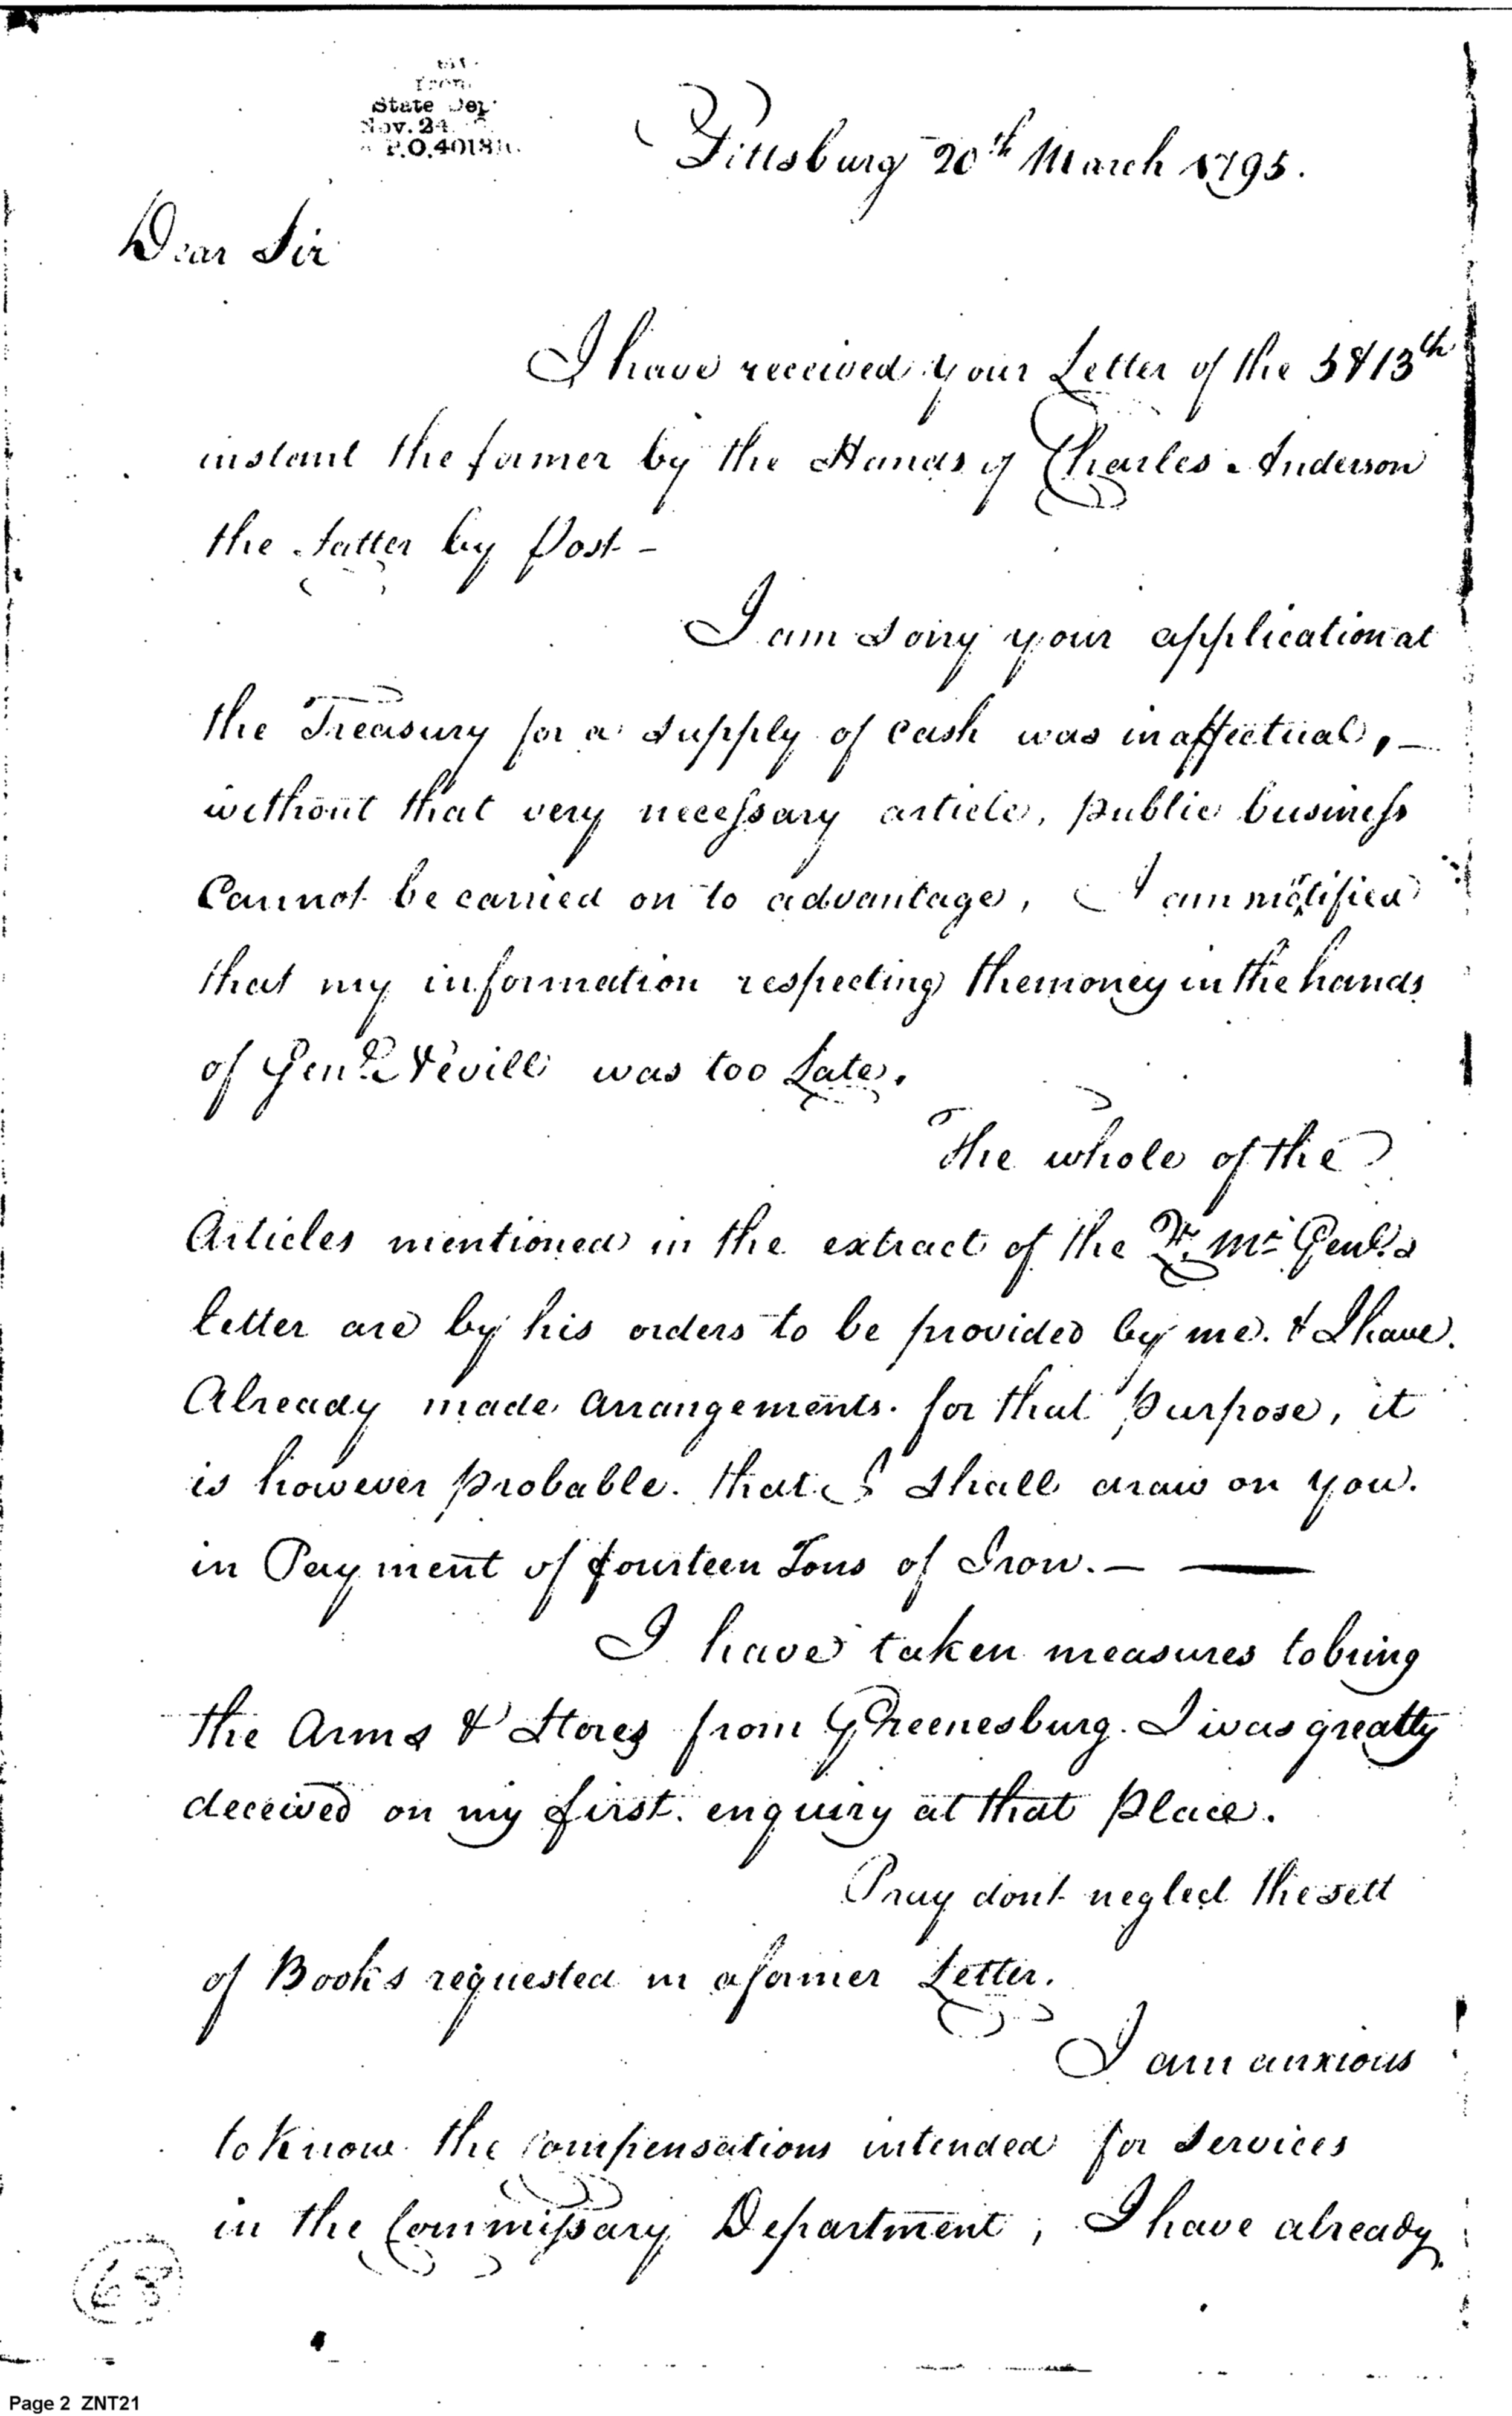 from
State Dep
Nov. 24
P.O. 401810
Pittsburg 20th March 1795.
Dear Sir
I have received your Letter of the 5 & 13th
instant the former by the Hands of Charles Anderson
the Latter by Post -
I am Sorry your application at
the Treasury for a Supply of Cash was inaffectual, -
without that very necessary article, public business
Cannot be carried on to advantage, I am motified
that my information respecting the money in the hands
of Genl. Nevill was too Late.
The whole of the
Articles mentioned in the extract of the Qr. Mr. Genl.s
letter are by his orders to be provided by me. & I have.
Already made Arrangements. for that Purpose, it
is however Probable. that I Shall draw on you.
in Payment of fourteen Tons of Iron. -
I have taken measures to bring
the Arms & Stores from Greenesburg. I was greatly
deceived on my first. enquiry at that Place.
Pray dont neglect the sett
of Books requested in a former Letter.
I am anxious
to Know the Compensations intended for Services
in the Commissary Department, I have already
68
Page 2 ZNT21